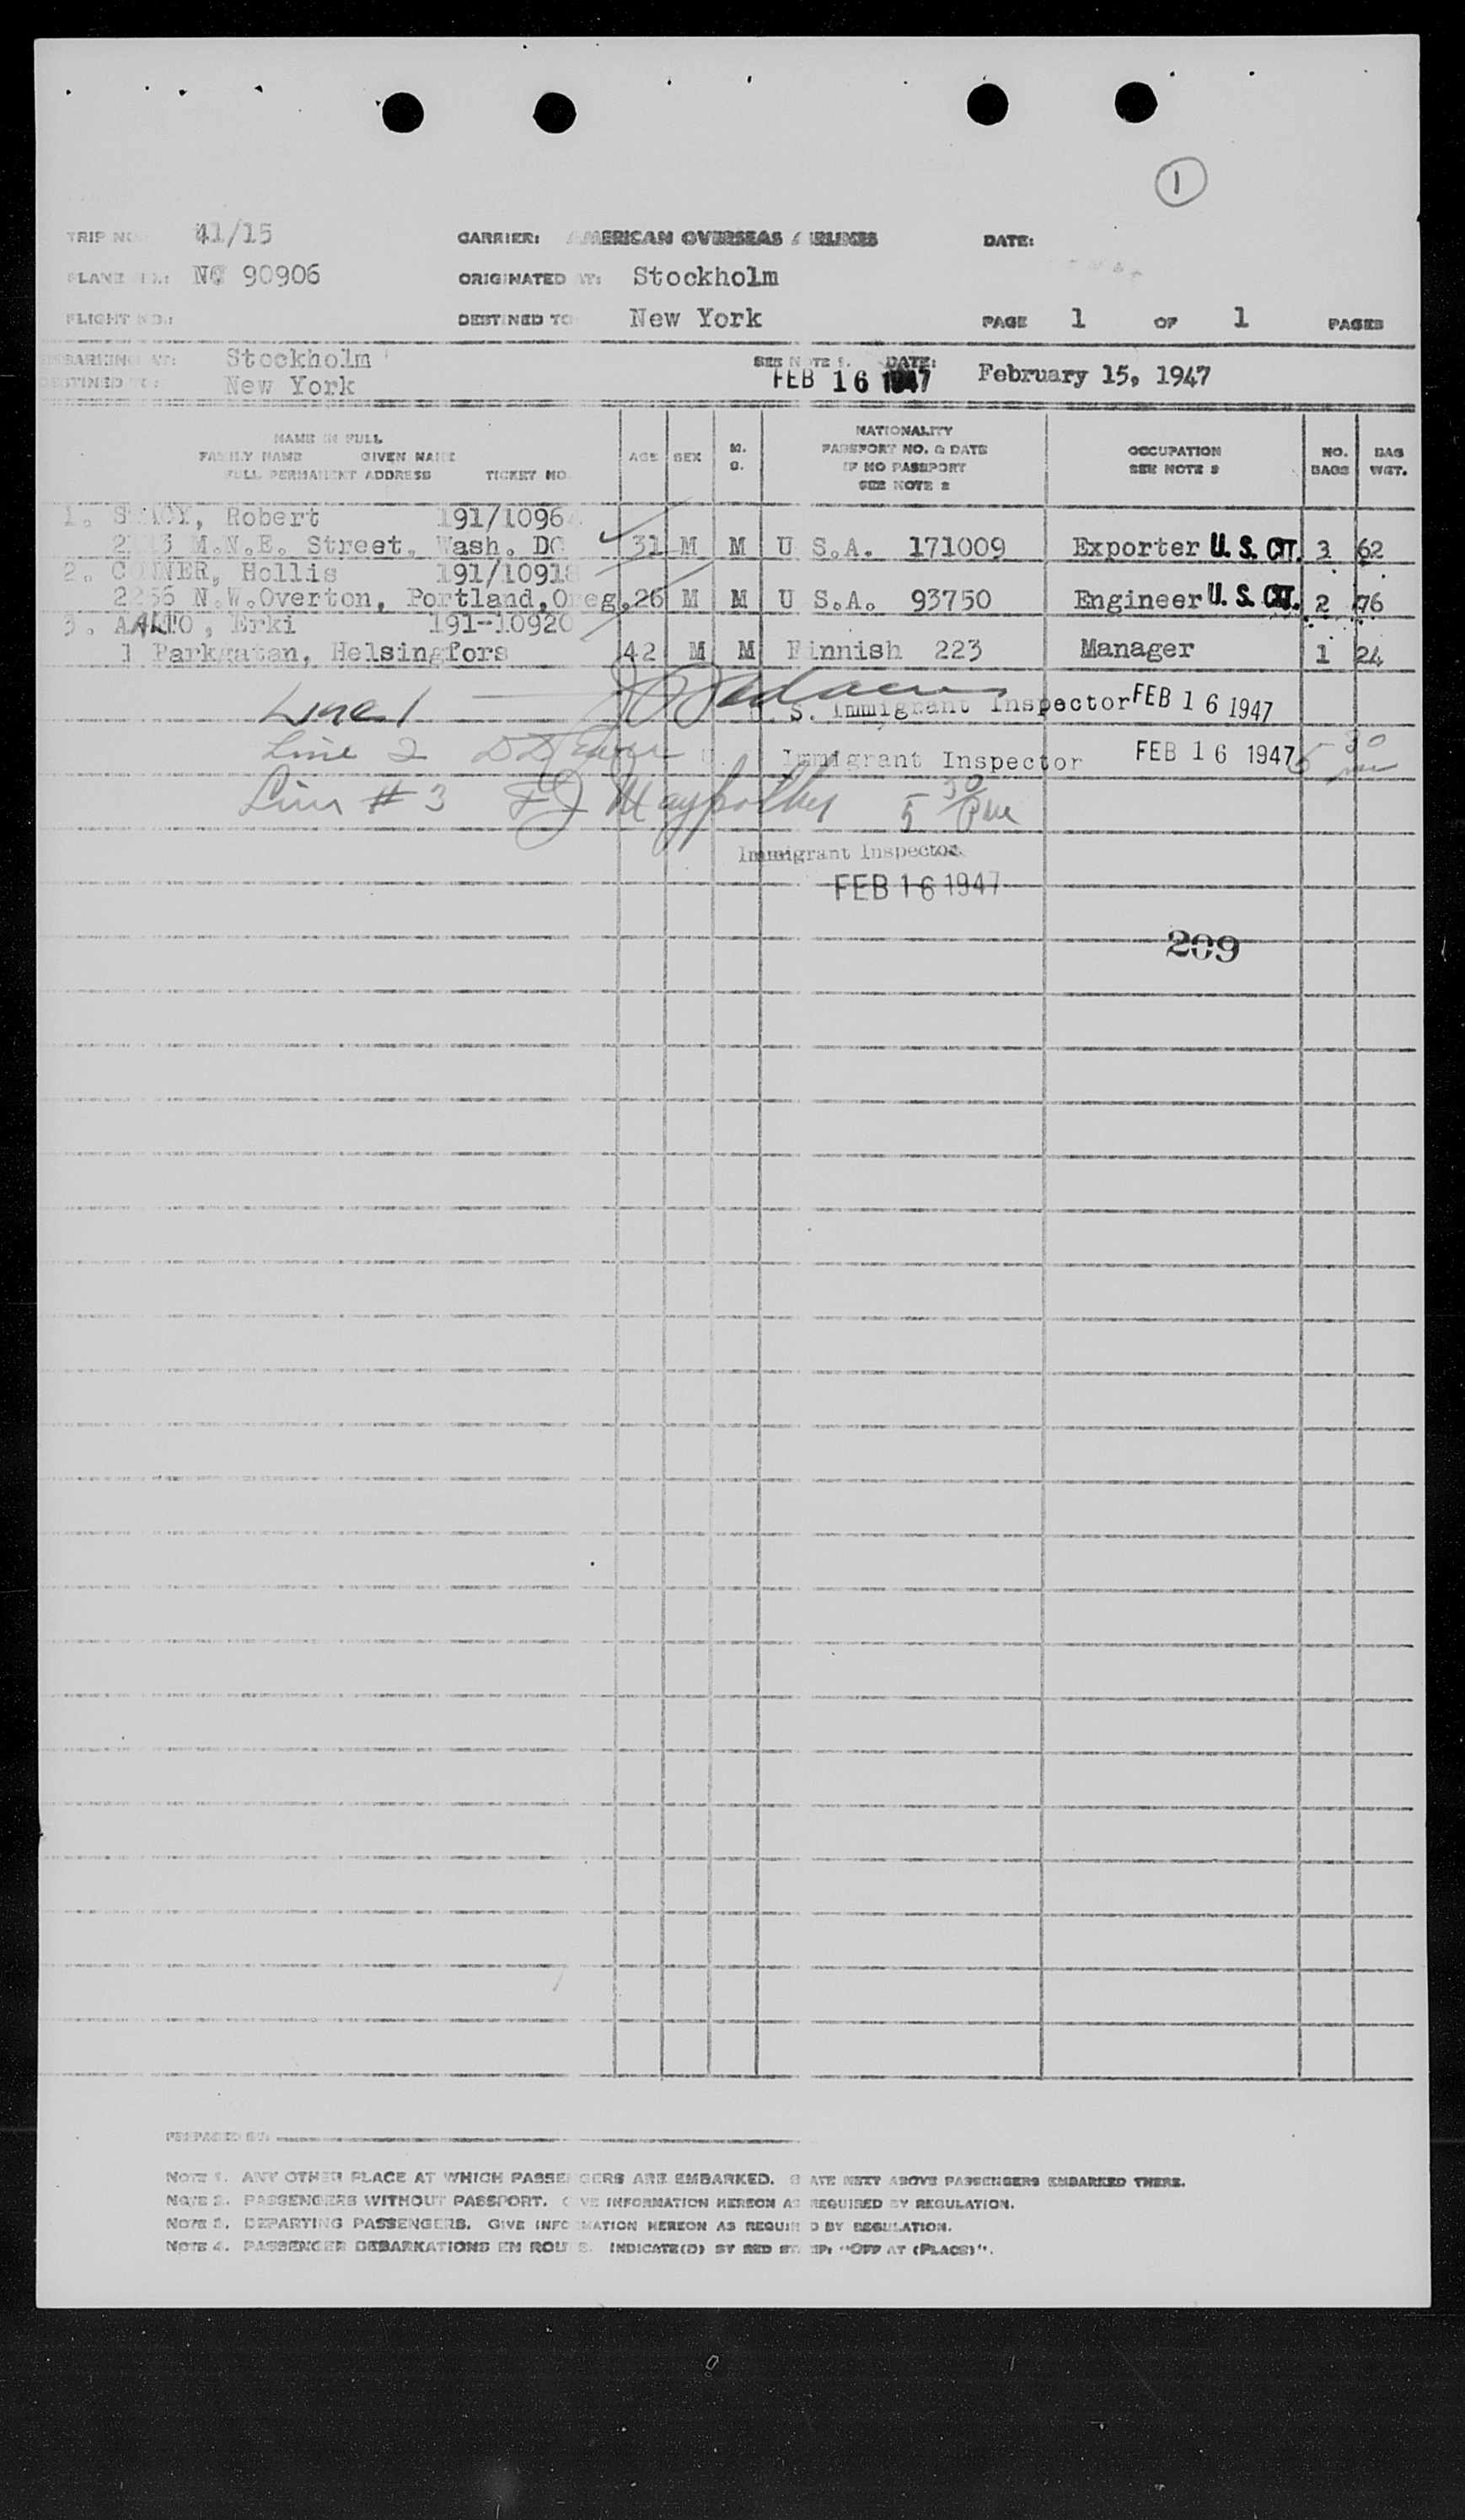 1
TRIP NO. 41/15 CARRIER: AMERICAN OVERSEAS AIRLINES DATE:
PLANE NO.: NC 90906 ORIGINATED AT: Stockholm
FLIGHT NO.: DESTINED TO New York PAGE 1 OF 1 PAGES
EMBARKING AT: Stockholm SEE NOTE 1. DATE: February 15, 1947
DESTINED TO: New York FEB 16 1947
NAME IN FULL
FAMILY NAME GIVEN NAME
FULL PERMANENT ADDRESS TICKET NO.
AGE SEX M. S.
NATIONALITY
PASSPORT NO. & DATE
IF NO PASSPORT
SEE NOTE 2
OCCUPATION
SEE NOTE 3
NO. BAGS
BAG WGT.
1. Robert 191/1096
M.N.E. Street, Wash. DC 31 M M U S.A. 171009 Exporter U. S. CIT. 3 62
2. CONNER, Hollis 191/10918
N.W.Overton, Portland,Oreg. 26 M M U S.A. 93750 Engineer U. S. CIT. 2 76
3. AALTO, Erki 191-10920
1 Parkgatan, Helsingfors 42 M M Finnish 223 Manager 1 24
Line 1 U. S. Immigrant Inspector FEB 16 1947
Line 2 Immigrant Inspector FEB 16 1947 5 30
Line # 3 5 30 Pm
Immigrant Inspector
FEB 16 1947
209
PREPARED BY:
NOTE 1. ANY OTHER PLACE AT WHICH PASSENGERS ARE EMBARKED. STATE NEXT ABOVE PASSENGERS EMBARKED THERE.
NOTE 2. PASSENGERS WITHOUT PASSPORT. GIVE INFORMATION HEREON AS REQUIRED BY REGULATION.
NOTE 3. DEPARTING PASSENGERS. GIVE INFORMATION HEREON AS REQUIRED BY REGULATION.
NOTE 4. PASSENGER DEBARKATIONS EN ROUTE. INDICATE(D) BY RED STAMP: "OFF AT (PLACE)".